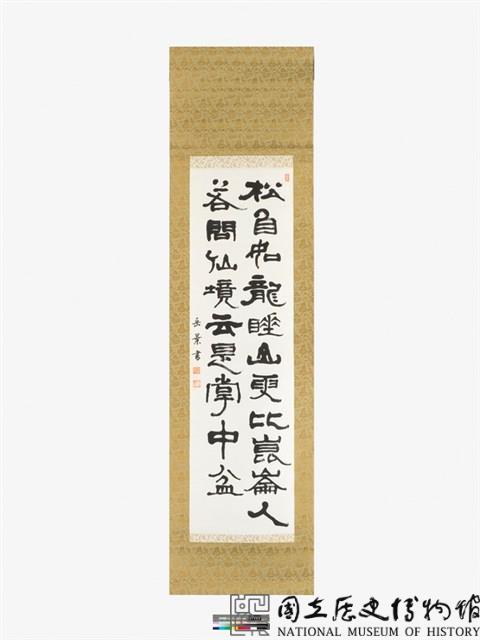 松自如龍睡山更比崑崙人
若問仙境云是掌中盆
岳景書
國立歷史博物館
NATIONAL MUSEUM OF HISTORY